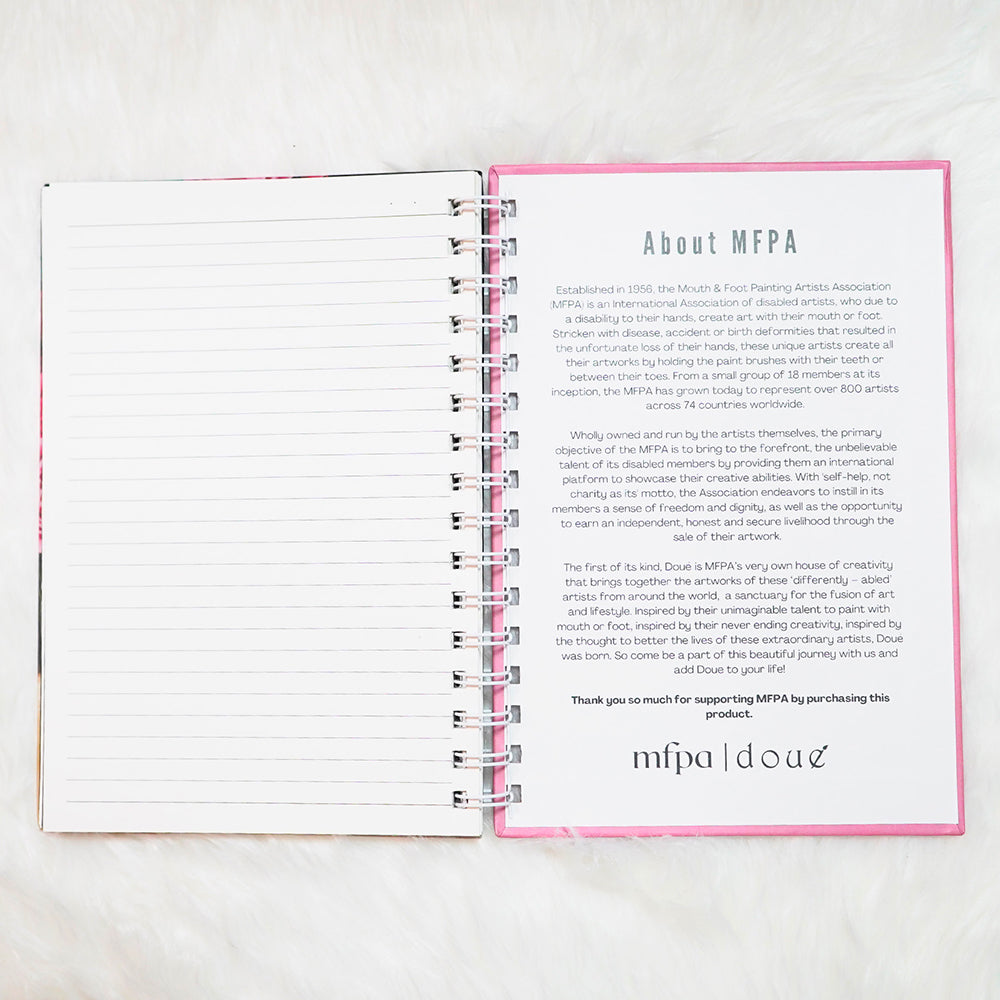 About MFPA
Established in 1956, the Mouth & Foot Painting Artists Association
(MFPA) is an International Association of disabled artists, who due to
a disability to their hands, create art with their mouth or foot.
Stricken with disease, accident or birth deformities that resulted in
the unfortunate loss of their hands, these unique artists create all
their artworks by holding the paint brushes with their teeth or
between their toes. From a small group of 18 members at its
inception, the MFPA has grown today to represent over 800 artists
across 74 countries worldwide.
Wholly owned and run by the artists themselves, the primary
objective of the MFPA is to bring to the forefront, the unbelievable
talent of its disabled members by providing them an international
platform to showcase their creative abilities. With 'self-help, not
charity as its' motto, the Association endeavors to instill in its
members a sense of freedom and dignity, as well as the opportunity
to earn an independent, honest and secure livelihood through the
sale of their artwork.
The first of its kind, Doue is MFPA's very own house of creativity
that brings together the artworks of these 'differently – abled'
artists from around the world, a sanctuary for the fusion of art
and lifestyle. Inspired by their unimaginable talent to paint with
mouth or foot, inspired by their never ending creativity, inspired by
the thought to better the lives of these extraordinary artists, Doue
was born. So come be a part of this beautiful journey with us and
add Doue to your life!
Thank you so much for supporting MFPA by purchasing this
product.
mfpa | doué